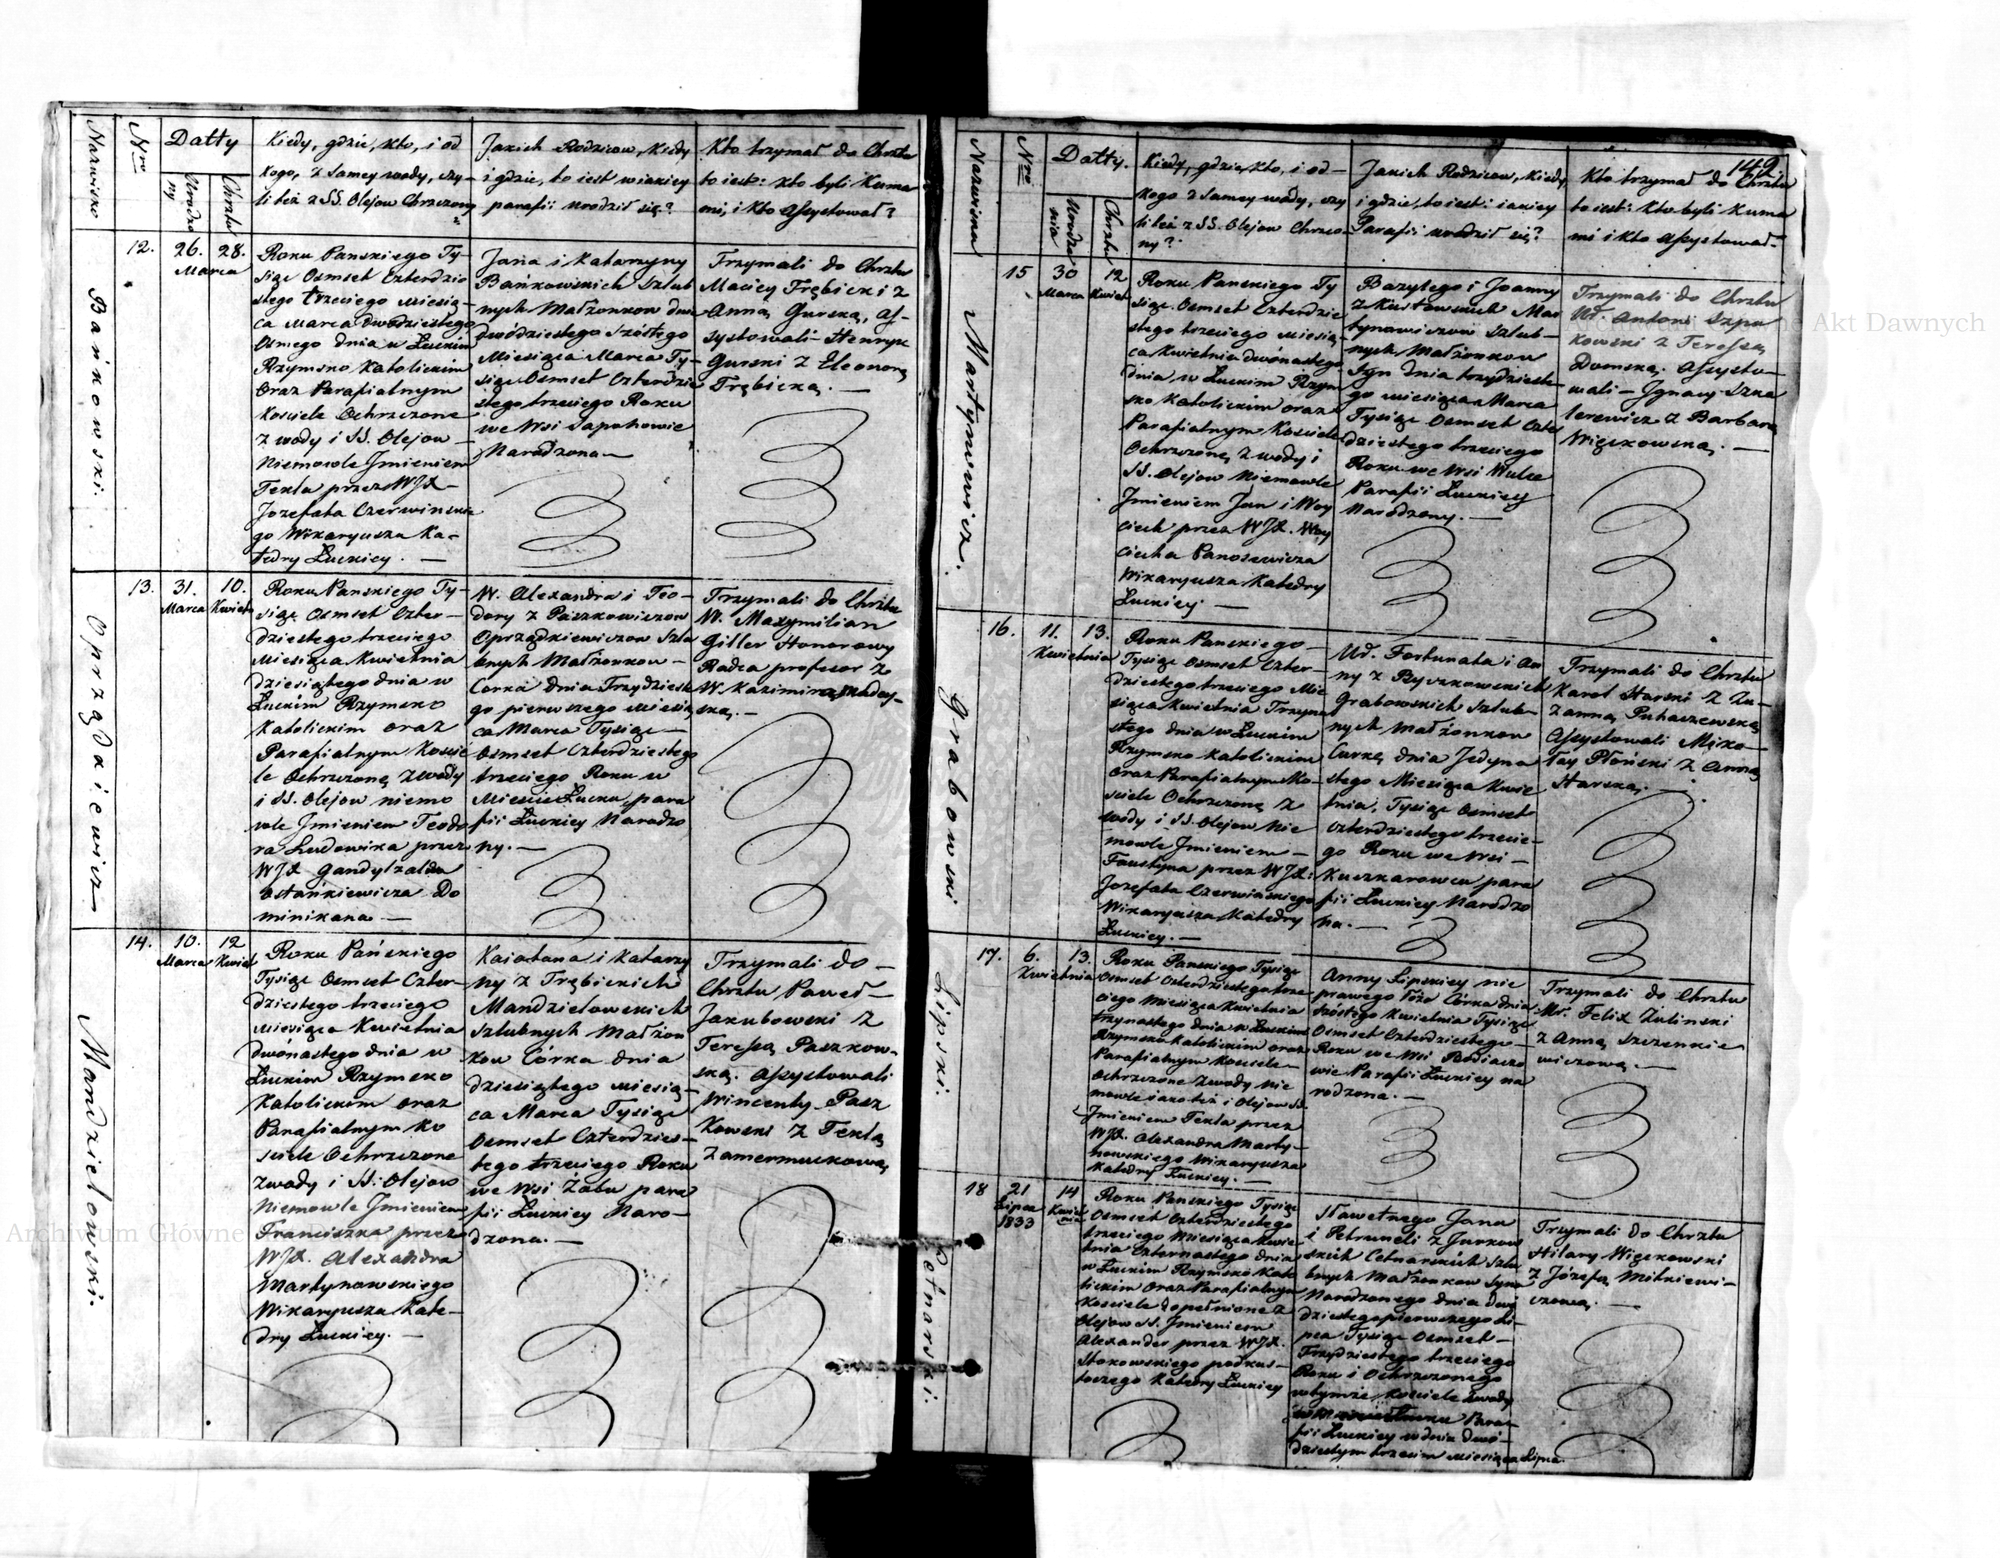 Nazwisko
Nro
Datty
Urodze
ny
Chrztu
Kiedy, gdzie, kto, i od
kogo, z samey wody, czy-
li też z SS. Olejow Chrzczony
Jakich Rodzicow, kiedy
i gdzie, to iest w iakiey
parafii urodził się?
Kto trzymał do Chrztu
to iest: kto byli Kuma
mi, i kto assystował?
Bańkowski.
12.
26.
28.
Marca
Roku Panskiego Ty-
siąc Osmset Czterdzie
stego trzeciego Miesią-
ca Marca dwudziestego
Osmego dnia w Łuckim
Rzymsko Katolickim
Oraz Parafialnym
Kościele Ochrzczone
z wody i SS. Olejow
Niemowle Jmieniem
Tekla przez WJX
Jozefata Czerwinskie
go Wikaryusza Ka-
tedry Łuckiey. —
Jana i Katarzyny
Bańkowskich Szlub
nych Małżonkow dnia
dwódziestego Szóstego
Miesiąca Marca Ty-
siąc Osmset Czterdzie
stego trzeciego Roku
we Wsi Sapohowie
Narodzona —
Trzymali do Chrztu
Maciey Trębicki z
Anną Gurską, As-
systowali Henryk
Gurski z Eleonorą
Trębicką. —
Oprządkiewicz
13.
31.
10.
Marca
Kwiet
Roku Panskiego Ty-
siąc Osmset Czter-
dziestego trzeciego
Miesiąca Kwietnia
dziesiątego dnia w
Łuckim Rzymsko
Katolickim oraz
Parafialnym Kości
le Ochrzczoną z wody
i SS. Olejow niemo
wle Jmieniem Teodo
ra Ludowika przez
WJX
Do
minikana —
W. Alexandra i Teo-
dory z Paszkowiczow
Oprządkiewiczow Szlu
bnych Małżonkow —
Corka dnia Trzydzieste
go pierwszego Miesią
ca Marca Tysiąc
Osmset Czterdziestego
trzeciego Roku w
Miescie Łucku, para
fii Łuckiey Narodzo
ny. —
Trzymali do Chrztu
W. Maxymilian
Giller Honorowy
Radca profesor z
W. Kazimirą
ską. —
Mandzielowski.
14.
10.
12
Marca
Kwiet
Roku Pańskiego
Tysiąc Osmset Czter-
dziestego trzeciego
Miesiąca Kwietnia
dwónastego dnia w
Łuckim Rzymsko
Katolickim oraz
Parafialnym Ko
sciele Ochrzczone
z wody i SS: Olejow
Niemowle Jmieniem
Franciszka przez
WJX. Alexandra
Martynowskiego
Wikaryusza Kate-
dry Łuckiey. —
Kaietana i Katarzy
ny z Trębickich
Mandzielowskich
Szlubnych Małżon
kow Córka dnia
dziesiątego Miesią-
ca Marca Tysiąc
Osmset Czterdzies-
tego trzeciego Roku
we Wsi Żabu para
fii Łuckiey Naro-
dzona. —
Trzymali do —
Chrztu Paweł —
Jakubowski z
Teressą Paszkow-
ską. Assystowali
Wincenty Pasz
kowski z Teklą
149.
Nazwiska
Nro
Datty.
Urodze
nia
Chrztu
Kiedy, gdzie, kto, i od-
kogo z Samey wody, czy
li też z SS. Olejow Chrzczo-
ny?
Jakich Rodzicow, kiedy,
i gdzie, to iest: iakiey
Parafii urodził się?
Kto trzymał do Chrztu
to iest: Kto byli Kuma
mi i kto Assystował
Martynowicz.
15
30
12
Marca
Kwiet
Roku Panskiego Ty
siąc Osmset Czterdzie
stego trzeciego Miesią-
ca Kwietnia dwónastego
dnia, w Łuckim Rzym
sko Katolickim oraz
Parafialnym Kosciele
Ochrzczone, z wody i
SS. Olejow Niemowle
Jmieniem Jan i Woy
ciech przez WJX. Woy
ciecha Panosewicza
Wikaryusza Katedry
Łuckiey —
Bazylego i Joanny
z Kustowskich Mar
tynowiczow Szlub-
nych Małżonkow
Syn dnia trzydzieste-
go miesiąca Marca
Tysiąc Osmset Czter
dziestego trzeciego
Roku we Wsi Wulce
Parafii Łuckiey
Narodzony. —
Trzymali do Chrztu
Uř. Antoni Szpa
kowski z Teressą
Domską. Assysto-
wali — Jgnacy Szka
lerewicz z Barbarą
Więckowską. —
Grabowski
16.
11.
13.
Kwietnia
Roku Panskiego —
Tysiąc Osmset Czter-
dziestego trzeciego Mie
siąca Kwietnia Trzyna
stego dnia w Łuckim
Rzymsko Katolickim
Oraz Parafialnym Ko-
sciele Ochrzczoną z
wody i SS. Olejow Nie
mowle Jmieniem —
Faustyna przez WJX:
Jozefata Czerwińskiego
Wikaryusza Katedry
Łuckiey. —
Uř. Fortunata i An
ny z Ryczkowskich
Grabowskich Szlub-
nych Małżonkow
Curka dnia Jedyna
stego Miesiąca Kwie
tnia, Tysiąc Osmset
Czterdziestego trzecie-
go Roku we Wsi —
Kuczkarowcu para
fii Łuckiey Narodzo
na. —
Trzymali do Chrztu
Karol Starski z Zu-
zanną Puhaczewską
Assystowali Miko-
łay Płoński z Anną
Starską.
Lipski.
17.
6.
13.
Kwietnia
Roku Panskiego Tysiąc
Osmset Czterdziestego trze
ciego Miesiąca Kwietnia
trzynastego dnia w Łuckim
Rzymsko Katolickim oraz
Parafialnym Kosciele —
Ochrzczone z wody nie
mowle iako też i Olejow SS.
Jmieniem Tekla przez
WJX. Alexandra Marty-
nowskiego Wikaryusza
Katedry Łuckiey. —
Anny Lipskiey nie
prawego łoża Córka dnia
szóstego Kwietnia Tysiąc
Osmset Czterdziestego —
Roku we Wsi
wie Parafii Łuckiey na
rodzona. —
Trzymali do Chrztu
Uř. Felix Zulinski
z Anną Szczenkie
wiczową. —
Cetnarski.
18
21
14
Lipca
1833
Kwiet
nia
Roku Panskiego Tysiąc
Osmset Czterdziestego
trzeciego Miesiąca Kwie
tnia Czternastego dnia
w Łuckim Rzymsko Kato
lickim Oraz Parafialnym
Kosciele Dopełnione z
Olejow SS. Jmieniem
Alexander przez WJX.
Stokowskiego podkus-
toszego Katedry Łuckiey
Sławetnego Jana
i Petruneli z Jurkow
skich Cetnarskich Szlu
bnych Małżonkow Syna
Narodzonego dnia dwó
dziestego pierwszego Li-
pca Tysiąc Osmset —
Trzydziestego trzeciego
Roku i Ochrzczonego
w tymże Kosciele z wody
Łucku Para-
fii Łuckiey w dniu dwó-
dziestym trzecim miesiąca Lipca.
Trzymali do Chrztu
Hilary Więckowski
z Józefą Mitkiewi-
czową. —
Archiwum Główne Akt Dawnych
Archiwum Główne Akt Dawnych